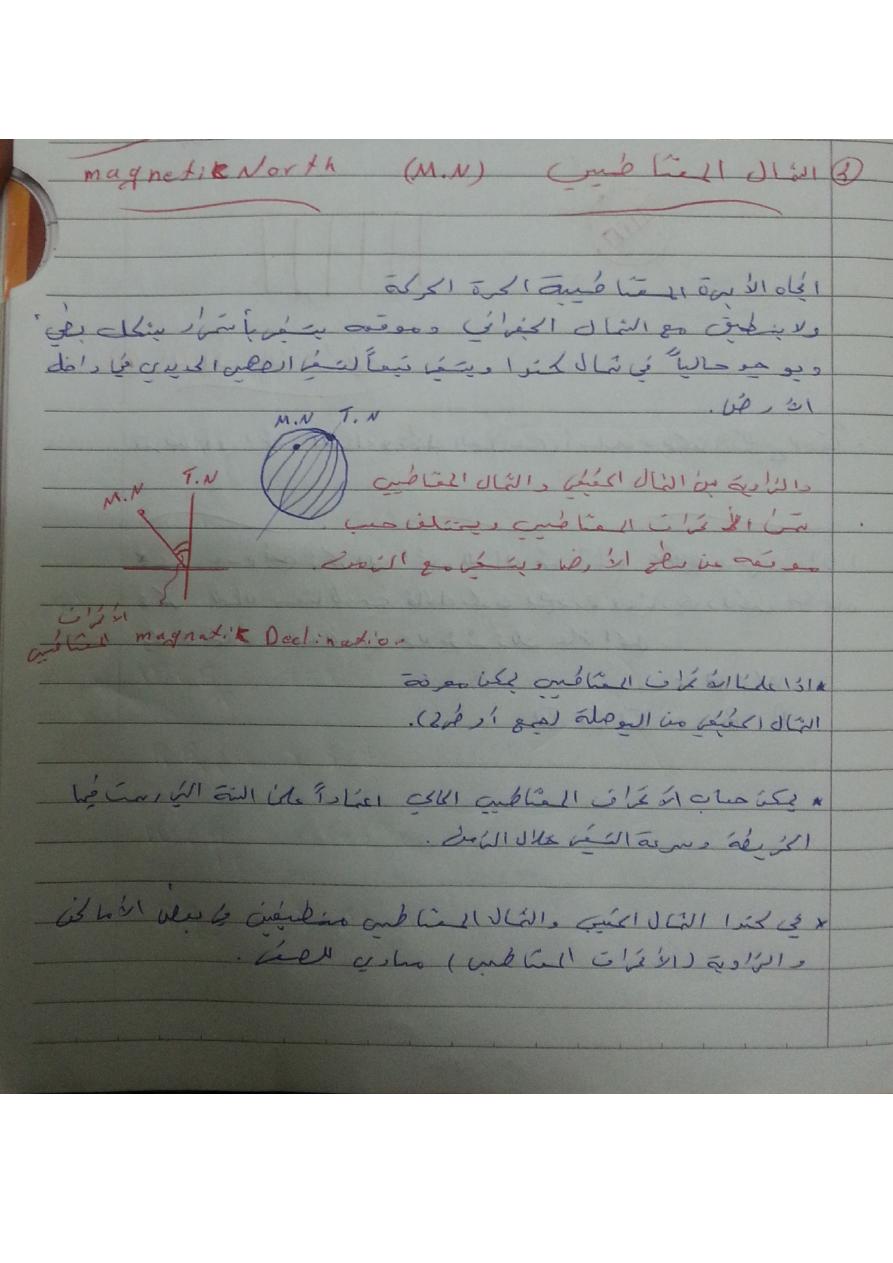 ③ الشمال المغناطيسي (M.N) magnetik North
اتجاه الأبرة المغناطيسية الحرة الحركة
ولا ينطبق مع الشمال الجغرافي وموقعه يتغير بأستمرار بشكل بطيء
ويوجد حالياً في شمال كندا ويتغير تبعاً لتغير الصهير الحديدي في داخل
الأرض.
M.N T.N
والزاوية بين الشمال الحقيقي والشمال المغناطيسي
تسمى الأنحراف المغناطيسي ويختلف حسب
موقعه عن سطح الأرض ويتغير مع الزمن.
M.N T.N
الأنحراف
المغناطيسي magnatik Declination
*اذا علمنا الأنحراف المغناطيسي يمكن معرفة
الشمال الحقيقي من البوصلة (جمع أو طرح).
* يمكن حساب الأنحراف المغناطيسي الحالي اعتماداً على السنة التي رسمت فيها
الخريطة وسرعة التغير خلال الزمن.
* في كندا الشمال الحقيقي والشمال المغناطيسي منطبقين في بعض الأماكن
والزاوية (الأنحراف المغناطيسي) مساوي للصفر.